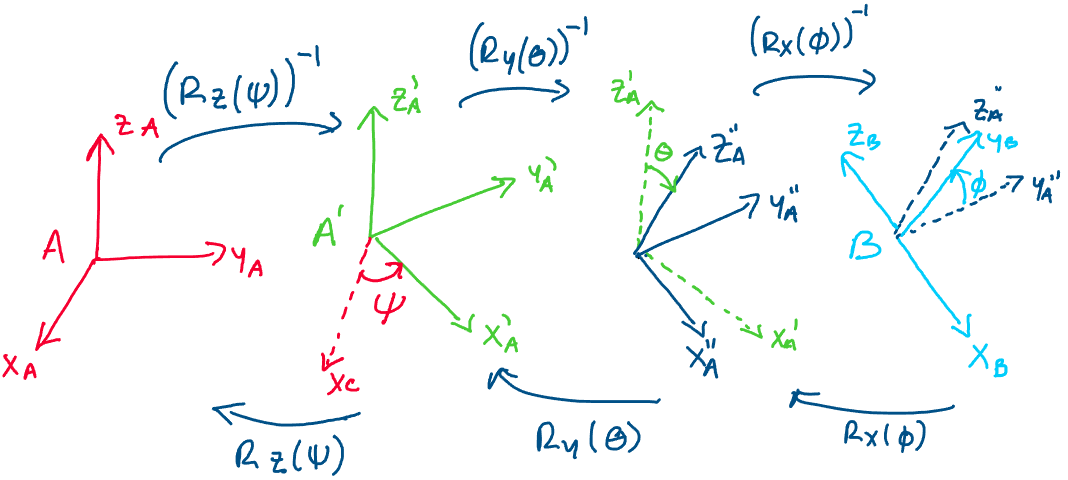 (Rz(ψ))⁻¹
(Ry(θ))⁻¹
(Rx(ϕ))⁻¹
zA
yA
xA
A
zA'
yA'
xA'
A'
ψ
xc
zA'
θ
zA''
yA''
xA''
xA'
zB
zA''
yB
yA''
ϕ
B
xB
Rz(ψ)
Ry(θ)
Rx(ϕ)